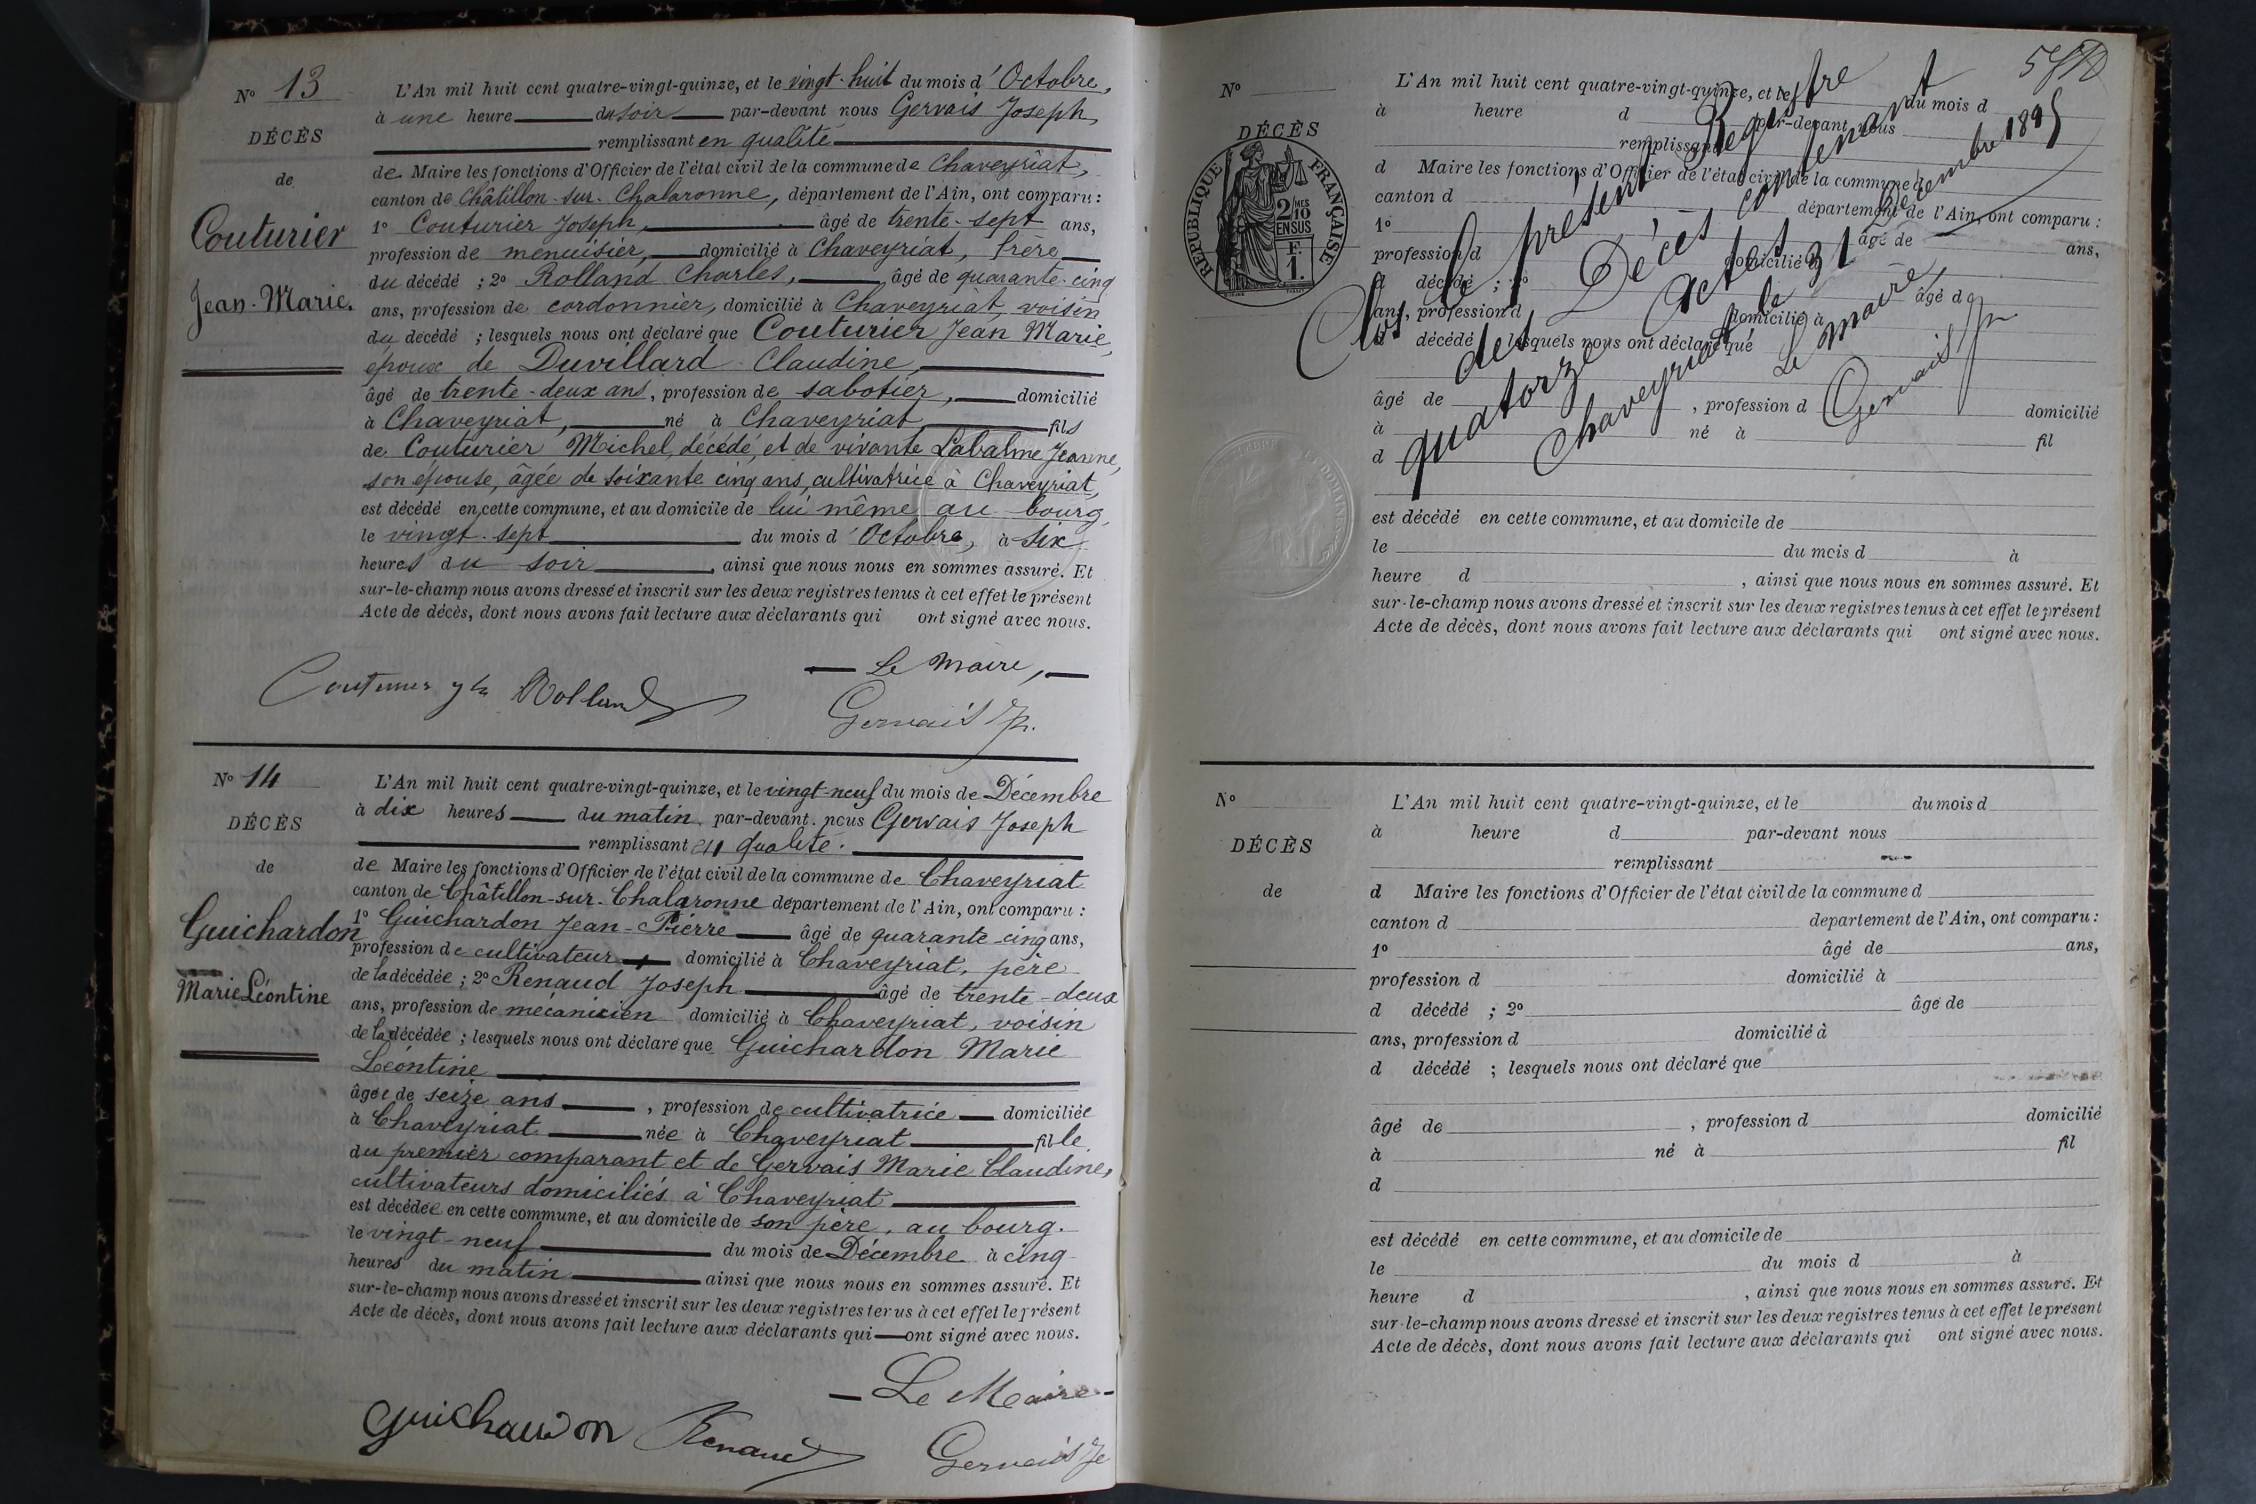 N° 13
DÉCÈS
de
Couturier
Jean-Marie.
L'An mil huit cent quatre-vingt-quinze, et le vingt-huit du mois d'Octobre,
à une heure du soir par-devant nous Gervais Joseph,
remplissant en qualité
de Maire les fonctions d'Officier de l'état civil de la commune de Chaveyriat,
canton de Châtillon-sur-Chalaronne, département de l'Ain, ont comparu :
1° Couturier Joseph, âgé de trente-sept ans,
profession de menuisier, domicilié à Chaveyriat, frère
du décédé ; 2° Rolland Charles, âgé de quarante-cinq
ans, profession de cordonnier, domicilié à Chaveyriat, voisin
du décédé ; lesquels nous ont déclaré que Couturier Jean Marie,
époux de Duvillard Claudine,
âgé de trente-deux ans, profession de sabotier, domicilié
à Chaveyriat, né à Chaveyriat, fils
de Couturier Michel, décédé, et de vivante Labalme Jeanne,
son épouse, âgée de soixante cinq ans, cultivatrice à Chaveyriat,
est décédé en cette commune, et au domicile de lui même au bourg,
le vingt-sept du mois d'Octobre, à six
heures du soir, ainsi que nous nous en sommes assuré. Et
sur-le-champ nous avons dressé et inscrit sur les deux registres tenus à cet effet le présent
Acte de décès, dont nous avons fait lecture aux déclarants qui ont signé avec nous.
Le Maire,
Rolland
Gervais Jh.
N° 14
DÉCÈS
de
Guichardon
Marie Léontine
L'An mil huit cent quatre-vingt-quinze, et le vingt-neuf du mois de Décembre
à dix heures du matin par-devant nous Gervais Joseph
remplissant en qualité
de Maire les fonctions d'Officier de l'état civil de la commune de Chaveyriat
canton de Châtillon-sur-Chalaronne département de l'Ain, ont comparu :
1° Guichardon Jean-Pierre âgé de quarante-cinq ans,
profession de cultivateur domicilié à Chaveyriat, père
de la décédée ; 2° Renaud Joseph âgé de trente-deux
ans, profession de mécanicien domicilié à Chaveyriat, voisin
de la décédée ; lesquels nous ont déclaré que Guichardon Marie
Léontine
âgée de seize ans, profession de cultivatrice domiciliée
à Chaveyriat née à Chaveyriat fille
du premier comparant et de Gervais Marie Claudine,
cultivateurs domiciliés à Chaveyriat
est décédée en cette commune, et au domicile de son père, au bourg.
le vingt-neuf du mois de Décembre à cinq
heures du matin ainsi que nous nous en sommes assuré. Et
sur-le-champ nous avons dressé et inscrit sur les deux registres tenus à cet effet le présent
Acte de décès, dont nous avons fait lecture aux déclarants qui ont signé avec nous.
Le Maire
Guichardon Renaud
Gervais Jh
N°
DÉCÈS
RÉPUBLIQUE FRANÇAISE
2/10 MES
EN SUS
F.
1.
L'An mil huit cent quatre-vingt-quinze, et le du mois d
à heure d par-devant nous
remplissant
d Maire les fonctions d'Officier de l'état civil de la commune d
canton d département de l'Ain, ont comparu :
1° âgé de ans,
profession d domicilié à
d décédé ; 2° âgé de
ans, profession d domicilié à
d décédé ; lesquels nous ont déclaré que
âgé de , profession d domicilié
à né à fil
d
est décédé en cette commune, et au domicile de
le du mois d à
heure d , ainsi que nous nous en sommes assuré. Et
sur-le-champ nous avons dressé et inscrit sur les deux registres tenus à cet effet le présent
Acte de décès, dont nous avons fait lecture aux déclarants qui ont signé avec nous.
Clos le présent Registre
des Décès contenant
quatorze Actes
Chaveyriat le 31 Décembre 1895
Le Maire,
Gervais Jh
N°
DÉCÈS
de
L'An mil huit cent quatre-vingt-quinze, et le du mois d
à heure d par-devant nous
remplissant
d Maire les fonctions d'Officier de l'état civil de la commune d
canton d département de l'Ain, ont comparu :
1° âgé de ans,
profession d domicilié à
d décédé ; 2° âgé de
ans, profession d domicilié à
d décédé ; lesquels nous ont déclaré que
âgé de , profession d domicilié
à né à fil
d
est décédé en cette commune, et au domicile de
le du mois d à
heure d , ainsi que nous nous en sommes assuré. Et
sur-le-champ nous avons dressé et inscrit sur les deux registres tenus à cet effet le présent
Acte de décès, dont nous avons fait lecture aux déclarants qui ont signé avec nous.